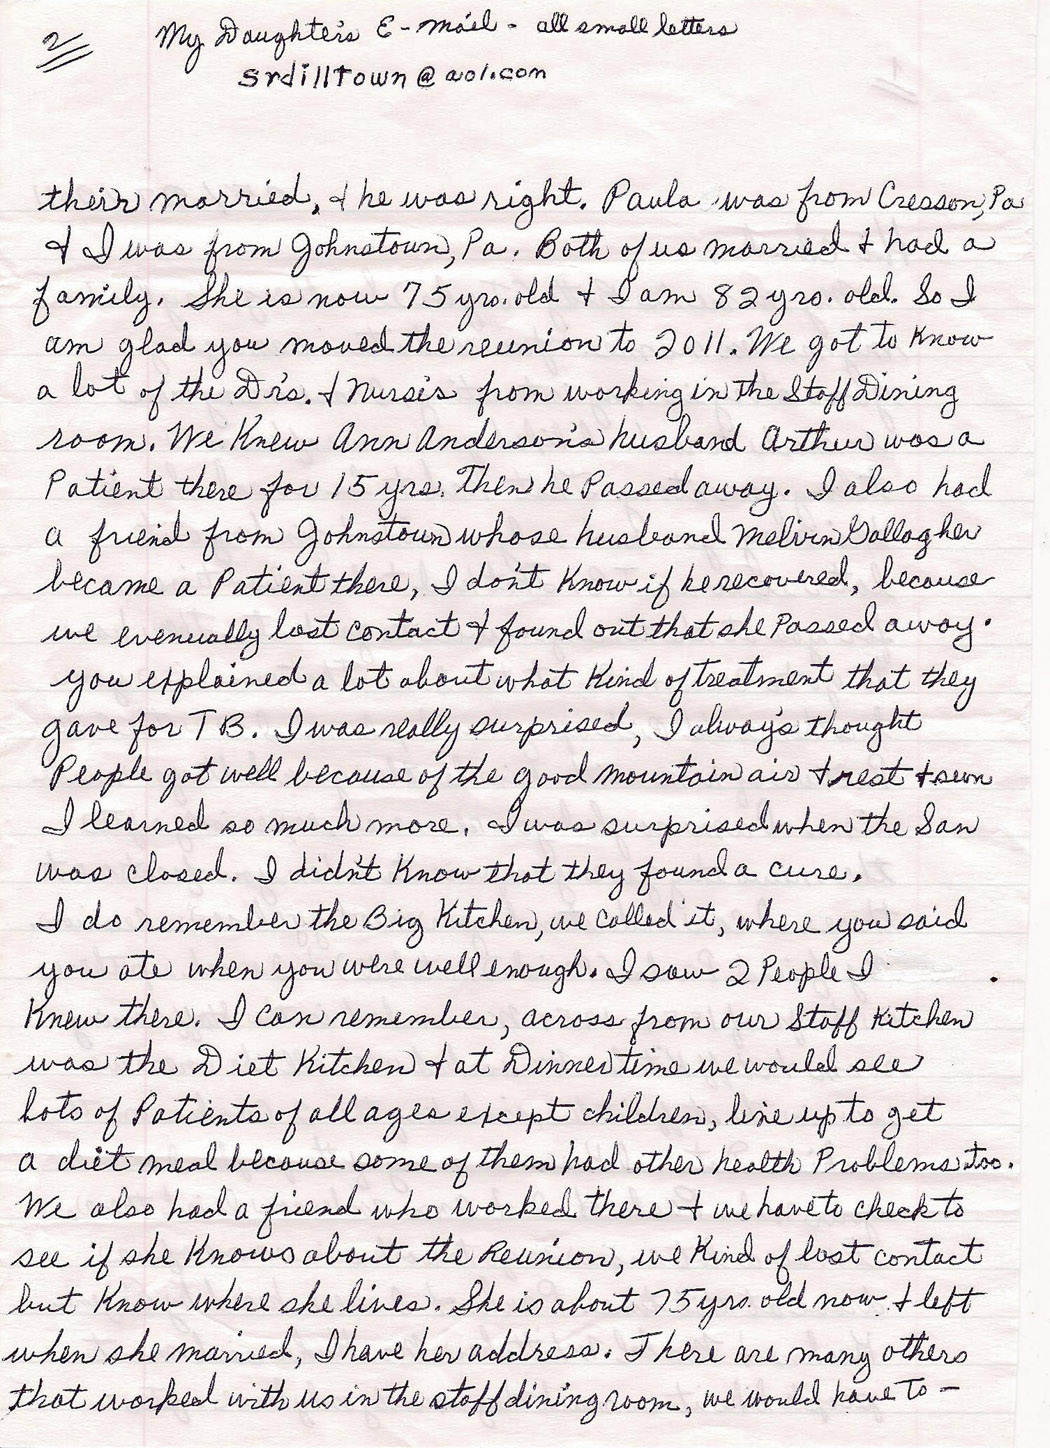 2
My Daughter's E-mail - all small letters
srdilltown@aol.com
their married, & he was right. Paula was from Cresson, Pa
& I was from Johnstown, Pa. Both of us married & had a
family. She is now 75 yrs. old & I am 82 yrs. old. So I
am glad you moved the reunion to 2011. We got to Know
a lot of the Dr's. & Nurse's from working in the Staff Dining
room. We Knew Ann Anderson's husband Arthur was a
Patient there for 15 yrs. Then he Passed away. I also had
a friend from Johnstown whose husband Melvin Gallagher
became a Patient there, I don't Know if he recovered, because
we evenually lost contact & found out that she Passed away.
you explained a lot about what Kind of treatment that they
gave for TB. I was really surprised, I alway's thought
People got well because of the good mountain air & rest & sun
I learned so much more. I was surprised when the San
was closed. I didn't Know that they found a cure.
I do remember the Big Kitchen, we called it, where you said
you ate when you were well enough. I saw 2 People I
Knew there. I can remember, across from our Staff Kitchen
was the Diet Kitchen & at Dinner time we would see
lots of Patients of all ages except children, line up to get
a diet meal because some of them had other health Problems too.
We also had a friend who worked there & we have to check to
see if she Knows about the Reunion, we Kind of lost contact
but Know where she lives. She is about 75 yrs. old now & left
when she married, I have her address. There are many others
that worked with us in the staff dining room, we would have to -